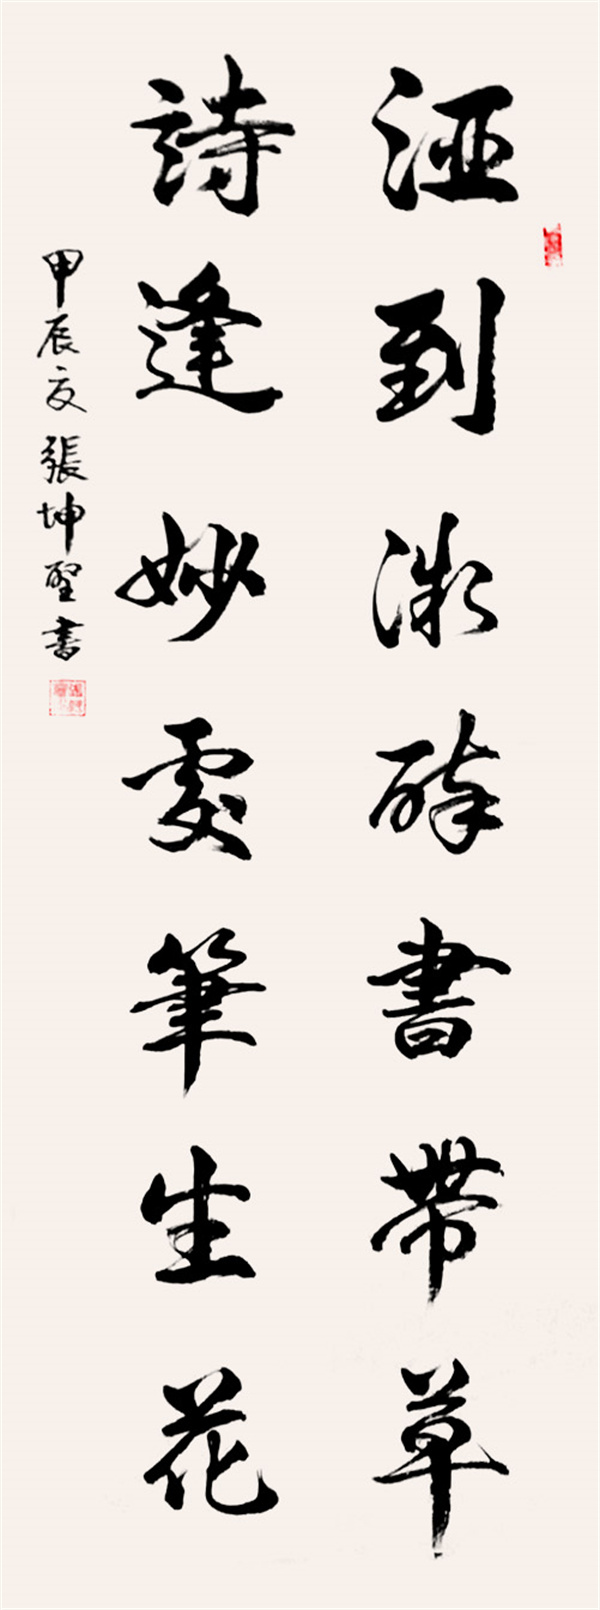 酒到微醉書帶草
詩逢妙處筆生花
甲辰夏張坤聖書